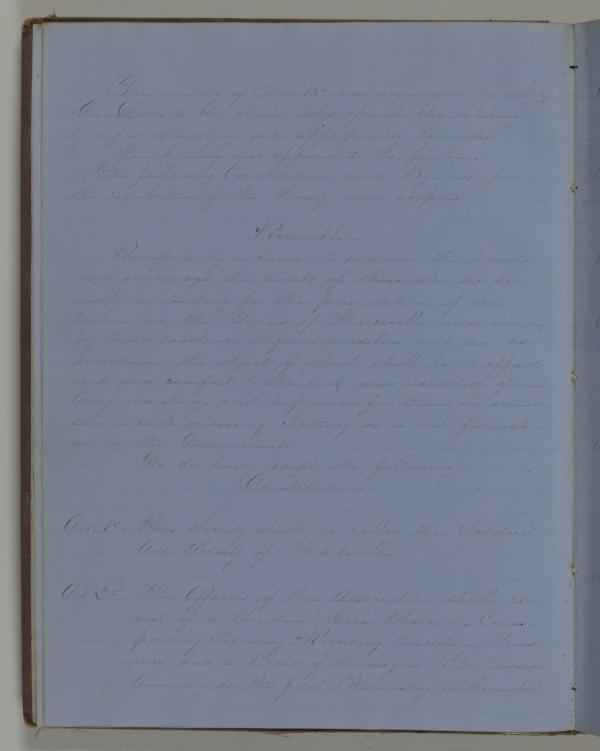 The meeting of Jan 15 was organized by calling
Geo Davis to the chair, who opened the meeting
by a few interesting and appropriate remarks.
Long was appointed Sec. pro tem.
The following Constitution and By laws for
the regulation of the Society were adopted.
Preamble.
Prompted by a desire to sustain the hands
and encourage the hearts of those who are so
nobly contending for the preservation of our
Union, we, the Ladies of Hartsville and vicin-
ity have resolved to form ourselves into an as-
sociation the object of which shall be to afford
aid and comfort to the sick and wounded of our
Army and Navy, and to provide for those in active
service such necessary clothing as is not furnish-
ed by the Government.
We do hereby adopt the following
Constitution.
Art. 1st. This Society shall be called the Soldiers'
Aid Society of Hartsville.
Art. 2d. The Officers of this Association shall con-
sist of a President, Vice President, Corres-
ponding Secretary, Recording Secretary, Treas-
urer and a Board of Managers to be chosen
annually on the first Wednesday in November